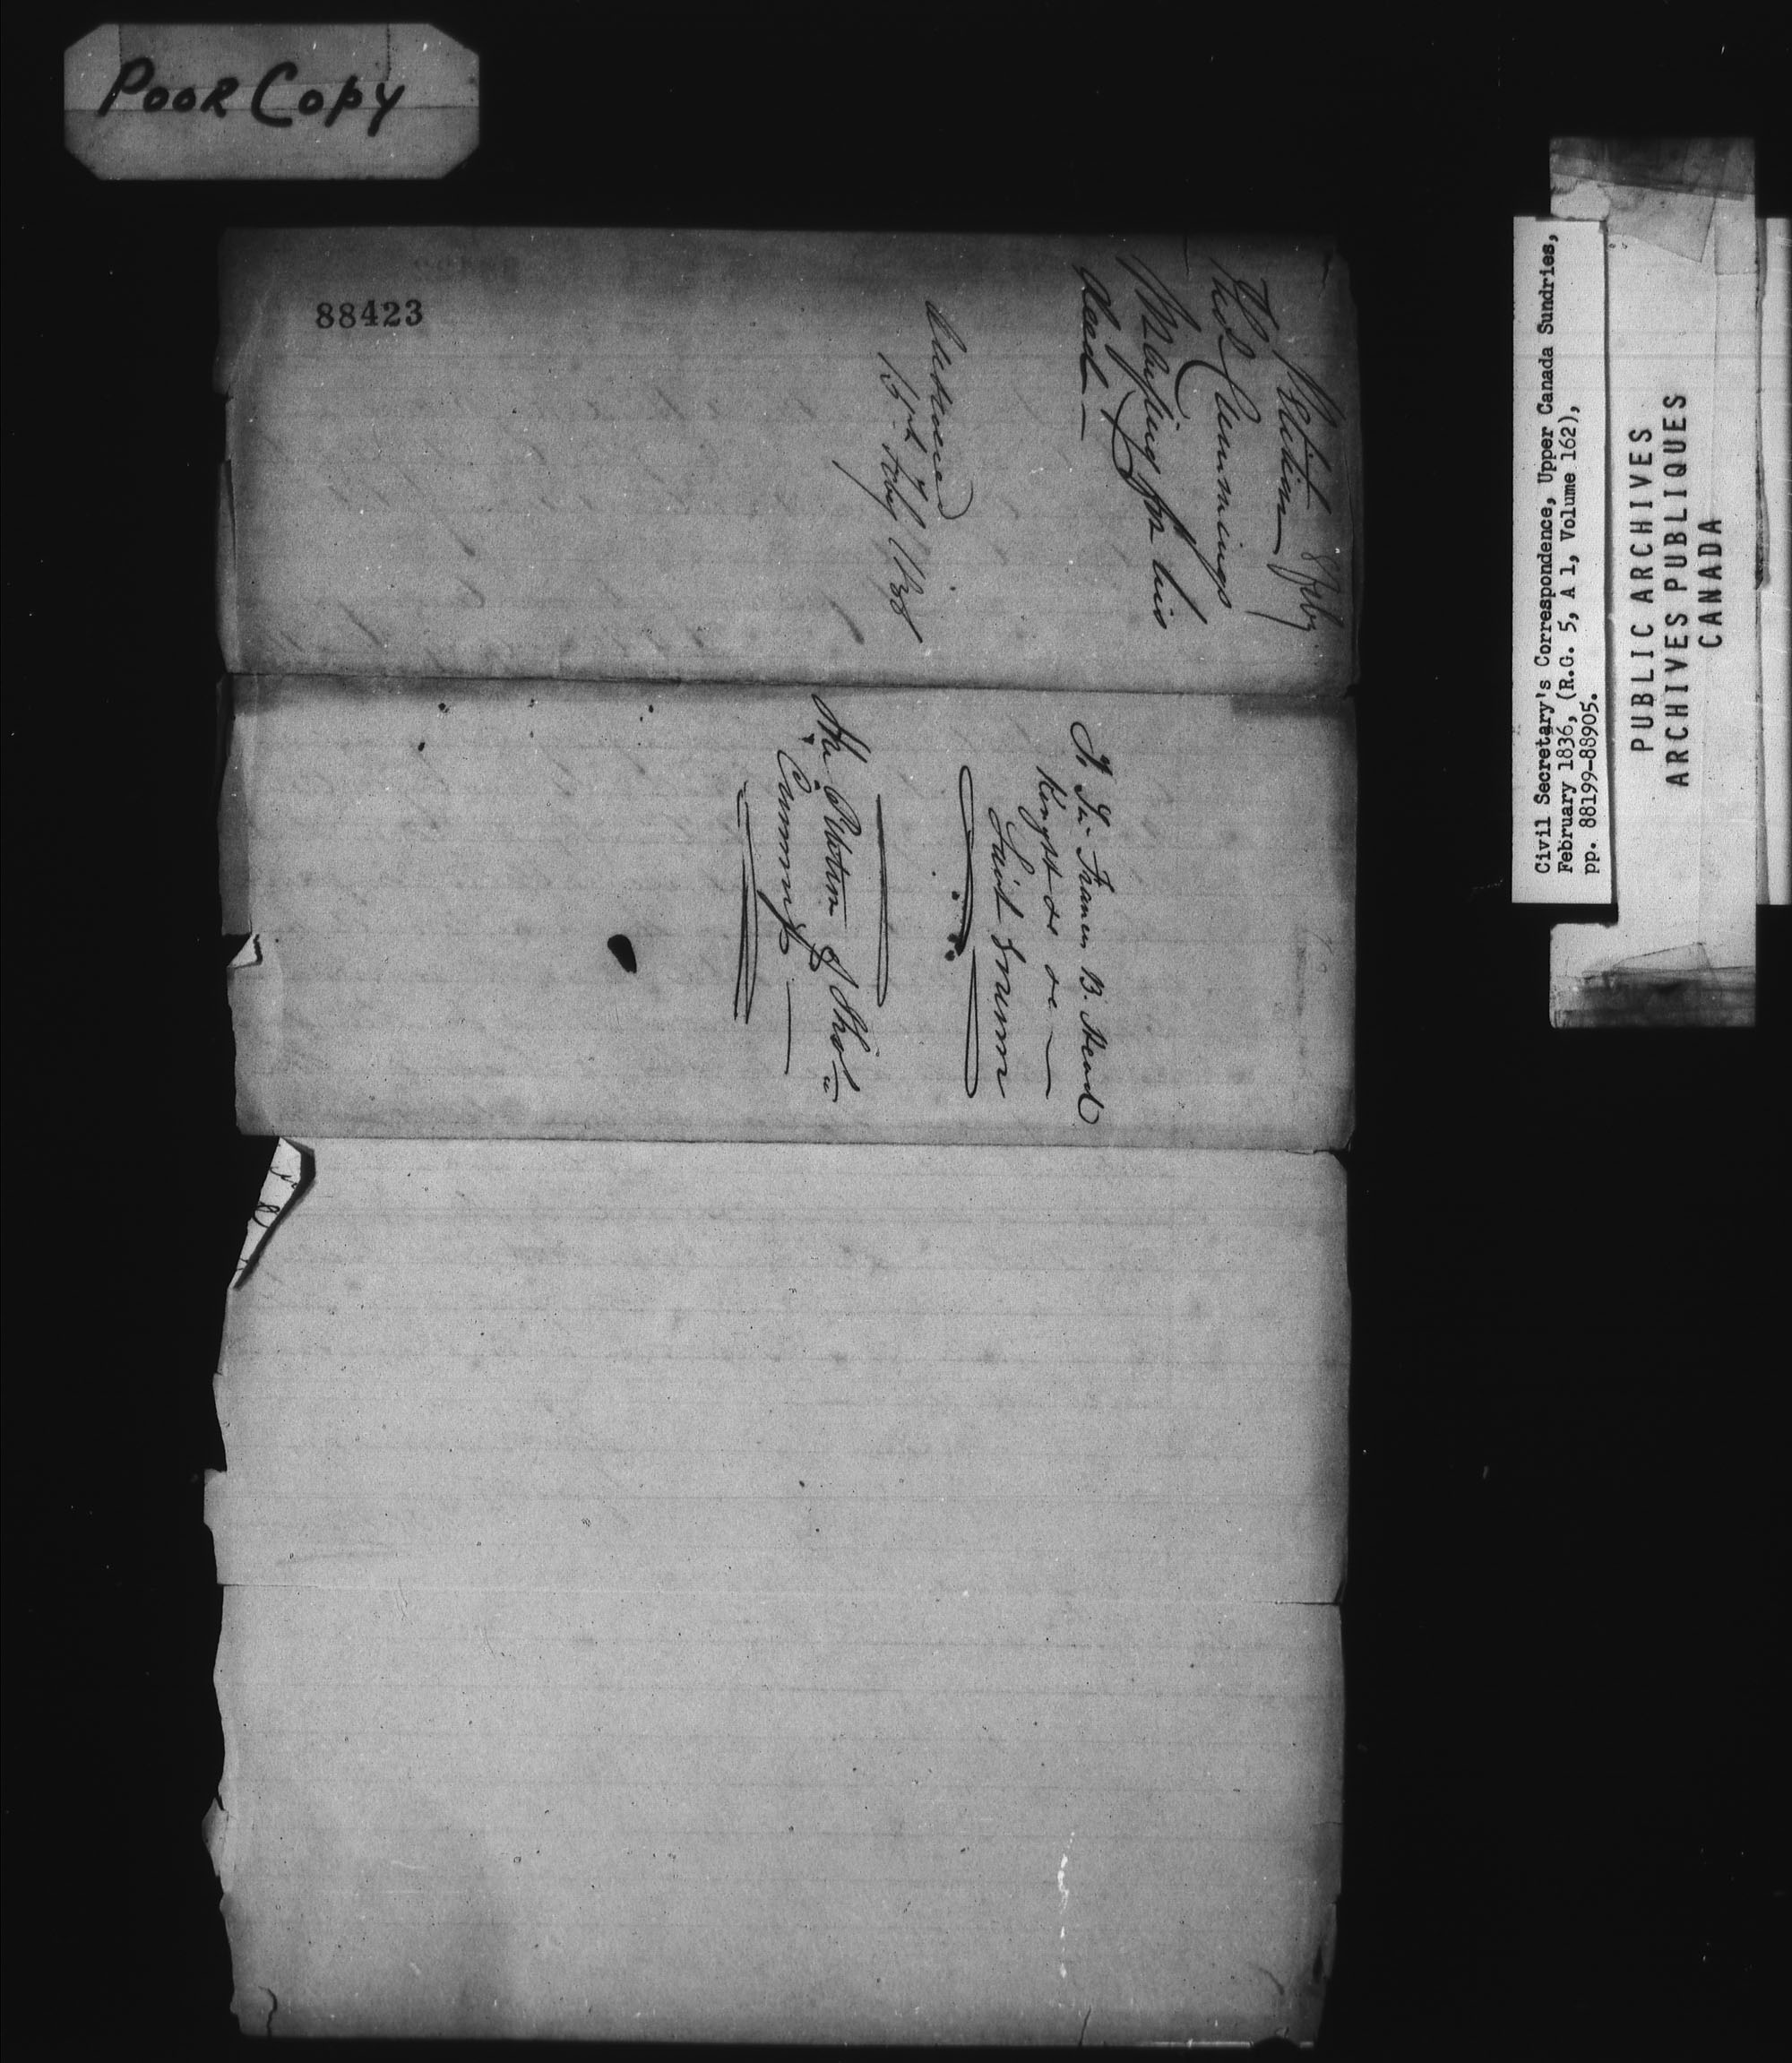 Poor Copy
88423
8 Feby
Petition
Thos Cummings
Praying for his
deed —
Answered
15th Feby 1836
To Sir Francis B. Head
Knight &c &c —
Lieut Governor
The Petition of Thos
Cummings
Civil Secretary's Correspondence, Upper Canada Sundries,
February 1836, (R.G. 5, A 1, Volume 162),
pp. 88199-88905.
PUBLIC ARCHIVES
ARCHIVES PUBLIQUES
CANADA